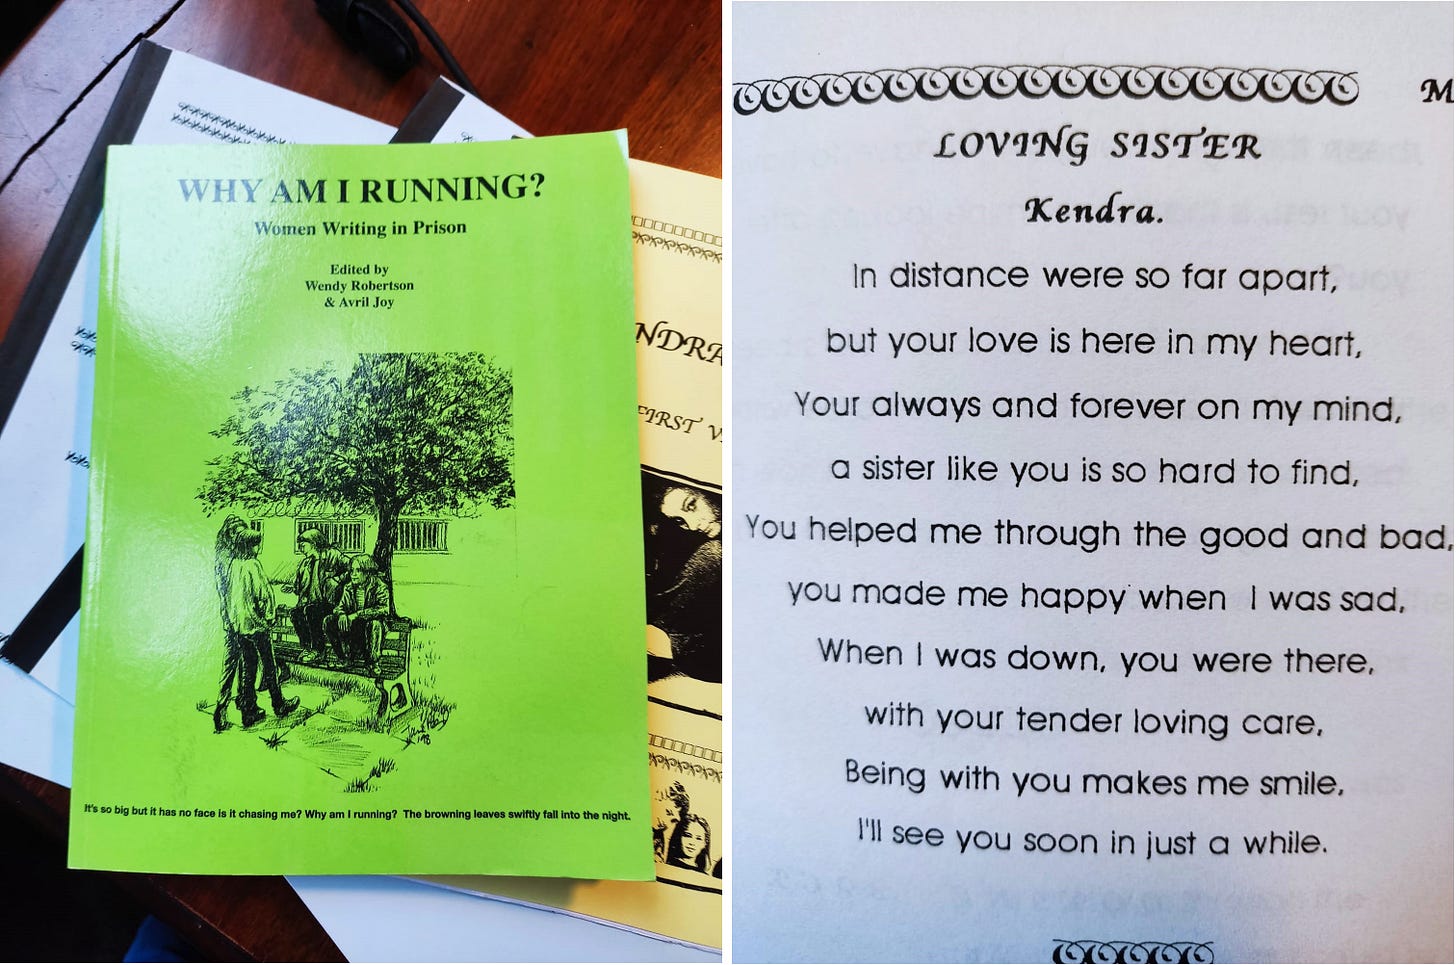 WHY AM I RUNNING?
Women Writing in Prison
Edited by
Wendy Robertson
& Avril Joy
It's so big but it has no face is it chasing me? Why am I running? The browning leaves swiftly fall into the night.
NDRA
FIRST V
M
LOVING SISTER
Kendra.
In distance were so far apart,
but your love is here in my heart,
Your always and forever on my mind,
a sister like you is so hard to find,
You helped me through the good and bad,
you made me happy when I was sad,
When I was down, you were there,
with your tender loving care,
Being with you makes me smile,
I'll see you soon in just a while.